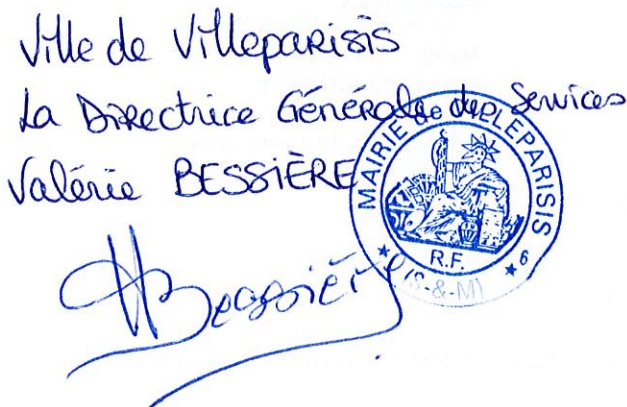 Ville de Villeparisis
La Directrice Générale des Services
Valérie BESSIÈRE
MAIRIE de VILLEPARISIS
R.F.
6
(S-&-M)
Bessière